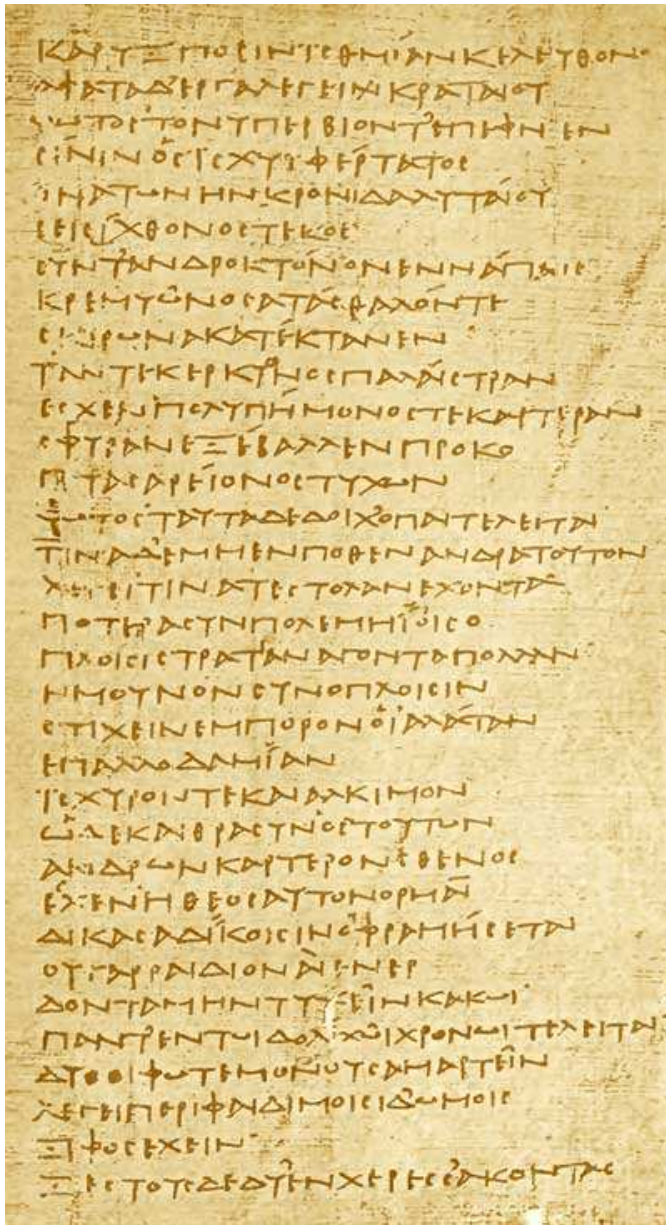 ΚΑΡΥΞΠΟϹΙΝΙϹΘΜΙΑΝΚΕΛΕΥΘΟΝ·
ΑΦΑΤΑΔΕΡΓΑΛΕΓΕΙΚΡΑΤΑΙΟΥ
ΦΩΤΟϹΤΟΝΥΠΕΡΒΙΟΝΤΕΠΕΦΝΕΝ
ϹΙΝΙΝΟϹΙϹΧΥΙΦΕΡΤΑΤΟϹ
ΘΝΑΤΩΝΗΝΚΡΟΝΙΔΑΛΥΤΑΙΟΥ
ϹΕΙϹΙΧΘΟΝΟϹΤΕΚΟϹ·
ϹΥΝΤΑΝΔΡΟΚΤΟΝΟΝΕΝΝΑΠΑΙϹ
ΚΡΕΜΥΩΝΟϹΑΤΑϹΘΑΛΟΝΤΕ
ϹΚΙΡΩΝΑΚΑΤΕΚΤΑΝΕΝ·
ΤΑΝΤΕΚΕΡΚΥΟΝΟϹΠΑΛΑΙϹΤΡΑΝ
ΕϹΧΕΝΠΟΛΥΠΗΜΟΝΟϹΤΕΚΑΡΤΕΡΑΝ
ϹΦΥΡΑΝΕΞΕΒΑΛΛΕΝΠΡΟΚΟ
ΠΤΑϹΑΡΕΙΟΝΟϹΤΥΧΩΝ
ΦΩΤΟϹΤΑΥΤΑΔΕΔΟΙΧΟΠΑΙΤΕΛΕΙΤΑΙ
ΤΙΝΑΔΕΜΜΕΝΠΟΘΕΝΑΝΔΡΑΤΟΥΤΟΝ
ΛΕΓΕΙΤΙΝΑΤΕϹΤΟΛΑΝΕΧΟΝΤΑ·
ΠΟΤΕΡΑϹΥΝΠΟΛΕΜΗΪΟΙϹΟ
ΠΛΟΙϹΙϹΤΡΑΤΙΑΝΑΓΟΝΤΑΠΟΛΛΑΝ·
ΗΜΟΥΝΟΝϹΥΝΟΠΛΟΙϹΙΝ
ϹΤΙΧΕΙΝΕΜΠΟΡΟΝΟΙΑΛΑΤΑΝ
ΕΠΑΛΛΟΔΑΜΙΑΝ
ΪϹΧΥΡΟΝΤΕΚΑΙΑΛΚΙΜΟΝ
ΩΔΕΚΑΙΘΡΑϹΥΝΟϹΤΟΥΤΩΝ
ΑΝΔΡΩΝΚΑΡΤΕΡΟΝϹΘΕΝΟϹ
ΕϹΧΕΝΗΘΕΟϹΑΥΤΟΝΟΡΜΑΙ
ΔΙΚΑϹΑΔΙΚΟΙϹΙΝΟΦΡΑΜΗϹΕΤΑΙ
ΟΥΓΑΡΡΑΙΔΙΟΝΑΙΕΝΕΡ
ΔΟΝΤΑΜΗΝΤΥΧΕΙΝΚΑΚΩΙ·
ΠΑΝΤΕΝΤΩΙΔΟΛΙΧΩΙΧΡΟΝΩΙΤΕΛΕΙΤΑΙ
ΔΥΟΟΙΦΩΤΕΜΟΝΟΥϹΑΜΑΡΤΕΙΝ
ΛΕΓΕΙΠΕΡΙΦΑΙΔΙΜΟΙϹΙΔΩΜΟΙϹ
ΞΙΦΟϹΕΧΕΙΝ·
ΞΕϹΤΟΥϹΔΕΔΥΕΝΧΕΡΕϹϹΑΚΟΝΤΑϹ